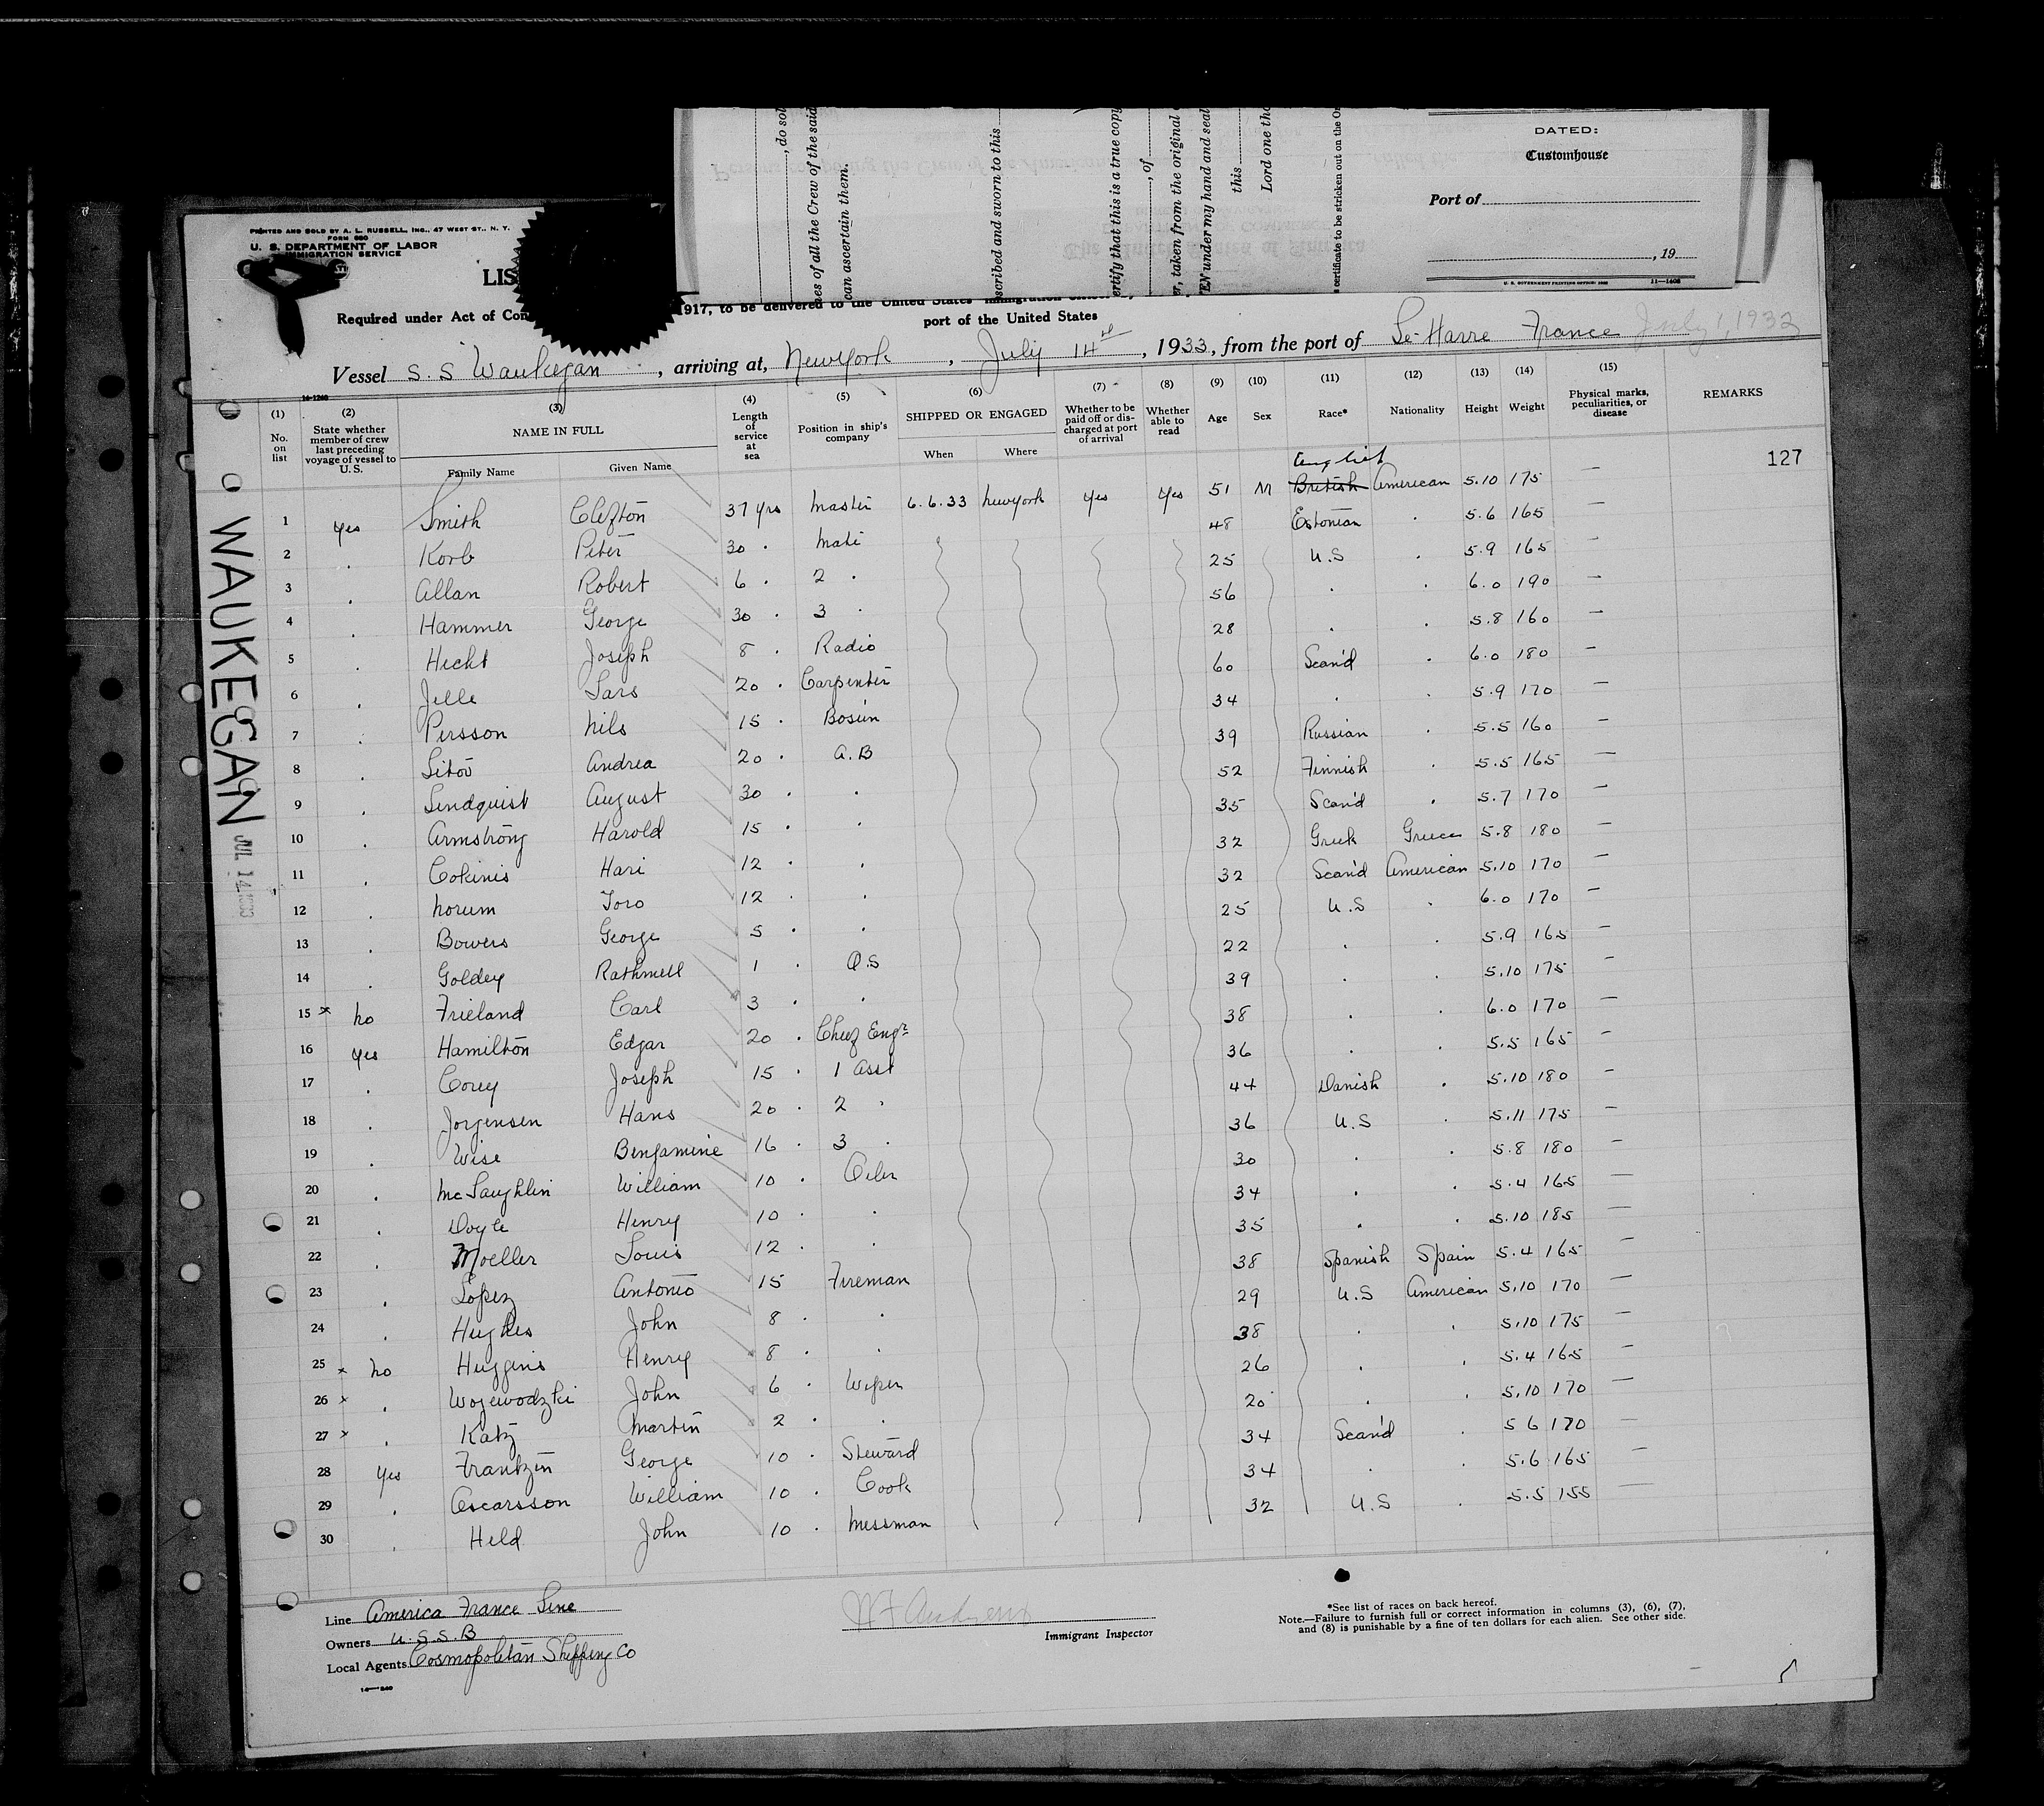 , do sol
nes of all the Crew of the said
can ascertain them.
scribed and sworn to this
ertify that this is a true copy
, of
r, taken from the original
EN under my hand and seal
this
Lord one tho
s certificate to be stricken out on the Or
DATED:
Customhouse
Port of
, 19
U. S. GOVERNMENT PRINTING OFFICE:
11—1408
PRINTED AND SOLD BY A. L. RUSSELL, INC., 47 WEST ST., N. Y.
FORM 680
U. S. DEPARTMENT OF LABOR
IMMIGRATION SERVICE
LIS
Required under Act of Con 1917, to be delivered to the United States
port of the United States
Vessel S. S Waukegan, arriving at, New York, July 14th, 1933, from the port of Le-Havre France July 1, 1933
(1) No. on list (2) State whether member of crew last preceding voyage of vessel to U. S. (3) NAME IN FULL Family Name Given Name (4) Length of service at sea (5) Position in ship's company (6) SHIPPED OR ENGAGED When Where (7) Whether to be paid off or discharged at port of arrival (8) Whether able to read (9) Age (10) Sex (11) Race* (12) Nationality (13) Height (14) Weight (15) Physical marks, peculiarities, or disease REMARKS
127
English
1 yes Smith Clifton 37 yrs Master 6.6.33 New York yes yes 51 M British American 5.10 175 —
2 . Korb Peter 30 . Mate 48 Estonian . 5.6 165 —
3 . Allan Robert 6 . 2 . 25 U.S . 5.9 165 —
4 . Hammer George 30 . 3 . 56 . . 6.0 190 —
5 . Hecht Joseph 8 . Radio 28 . . 5.8 160 —
6 . Jelle Lars 20 . Carpenter 60 Scan'd . 6.0 180 —
7 . Persson Nils 15 . Bosun 34 . . 5.9 170 —
8 . Sitov Andrea 20 . A.B 39 Russian . 5.5 160 —
9 . Lindquist August 30 . . 52 Finnish . 5.5 165 —
10 . Armstrong Harold 15 . . 35 Scan'd . 5.7 170 —
11 . Cokinis Hari 12 . . 32 Greek Greece 5.8 180 —
12 . Norum Toro 12 . . 32 Scan'd American 5.10 170 —
13 . Bowers George 5 . . 25 U.S . 6.0 170 —
14 . Goldey Rathmell 1 . O.S 22 . . 5.9 165 —
15 x no Frieland Carl 3 . . 39 . . 5.10 175 —
16 yes Hamilton Edgar 20 . Chief Engr 38 . . 6.0 170 —
17 . Corey Joseph 15 . 1 Asst 36 . . 5.5 165 —
18 . Jorgensen Hans 20 . 2 . 44 Danish . 5.10 180 —
19 . Wise Benjamine 16 . 3 . 36 U.S . 5.11 175 —
20 . McLaughlin William 10 . Oiler 30 . . 5.8 180 —
21 . Doyle Henry 10 . . 34 . . 5.4 165 —
22 . Moeller Louis 12 . . 35 . . 5.10 185 —
23 . Lopez Antonio 15 Fireman 38 Spanish Spain 5.4 165 —
24 . Hughes John 8 . . 29 U.S American 5.10 170 —
25 x no Huggins Henry 8 . . 38 . . 5.10 175 —
26 x . Wojewodzki John 6 . Wiper 26 . . 5.4 165 —
27 x . Katz Martin 2 . . 20 . . 5.10 170 —
28 yes Frantzen George 10 . Steward 34 Scan'd . 5 6 170 —
29 . Oscarsson William 10 . Cook 34 . . 5.6 165 —
30 . Held John 10 . Messman 32 U.S . 5.5 155 —
WAUKEGAN
JUL 14 1933
Line America France Line
Owners U.S.S.B
Local Agents Cosmopolitan Shipping Co
Immigrant Inspector
*See list of races on back hereof.
Note.—Failure to furnish full or correct information in columns (3), (6), (7),
and (8) is punishable by a fine of ten dollars for each alien. See other side.